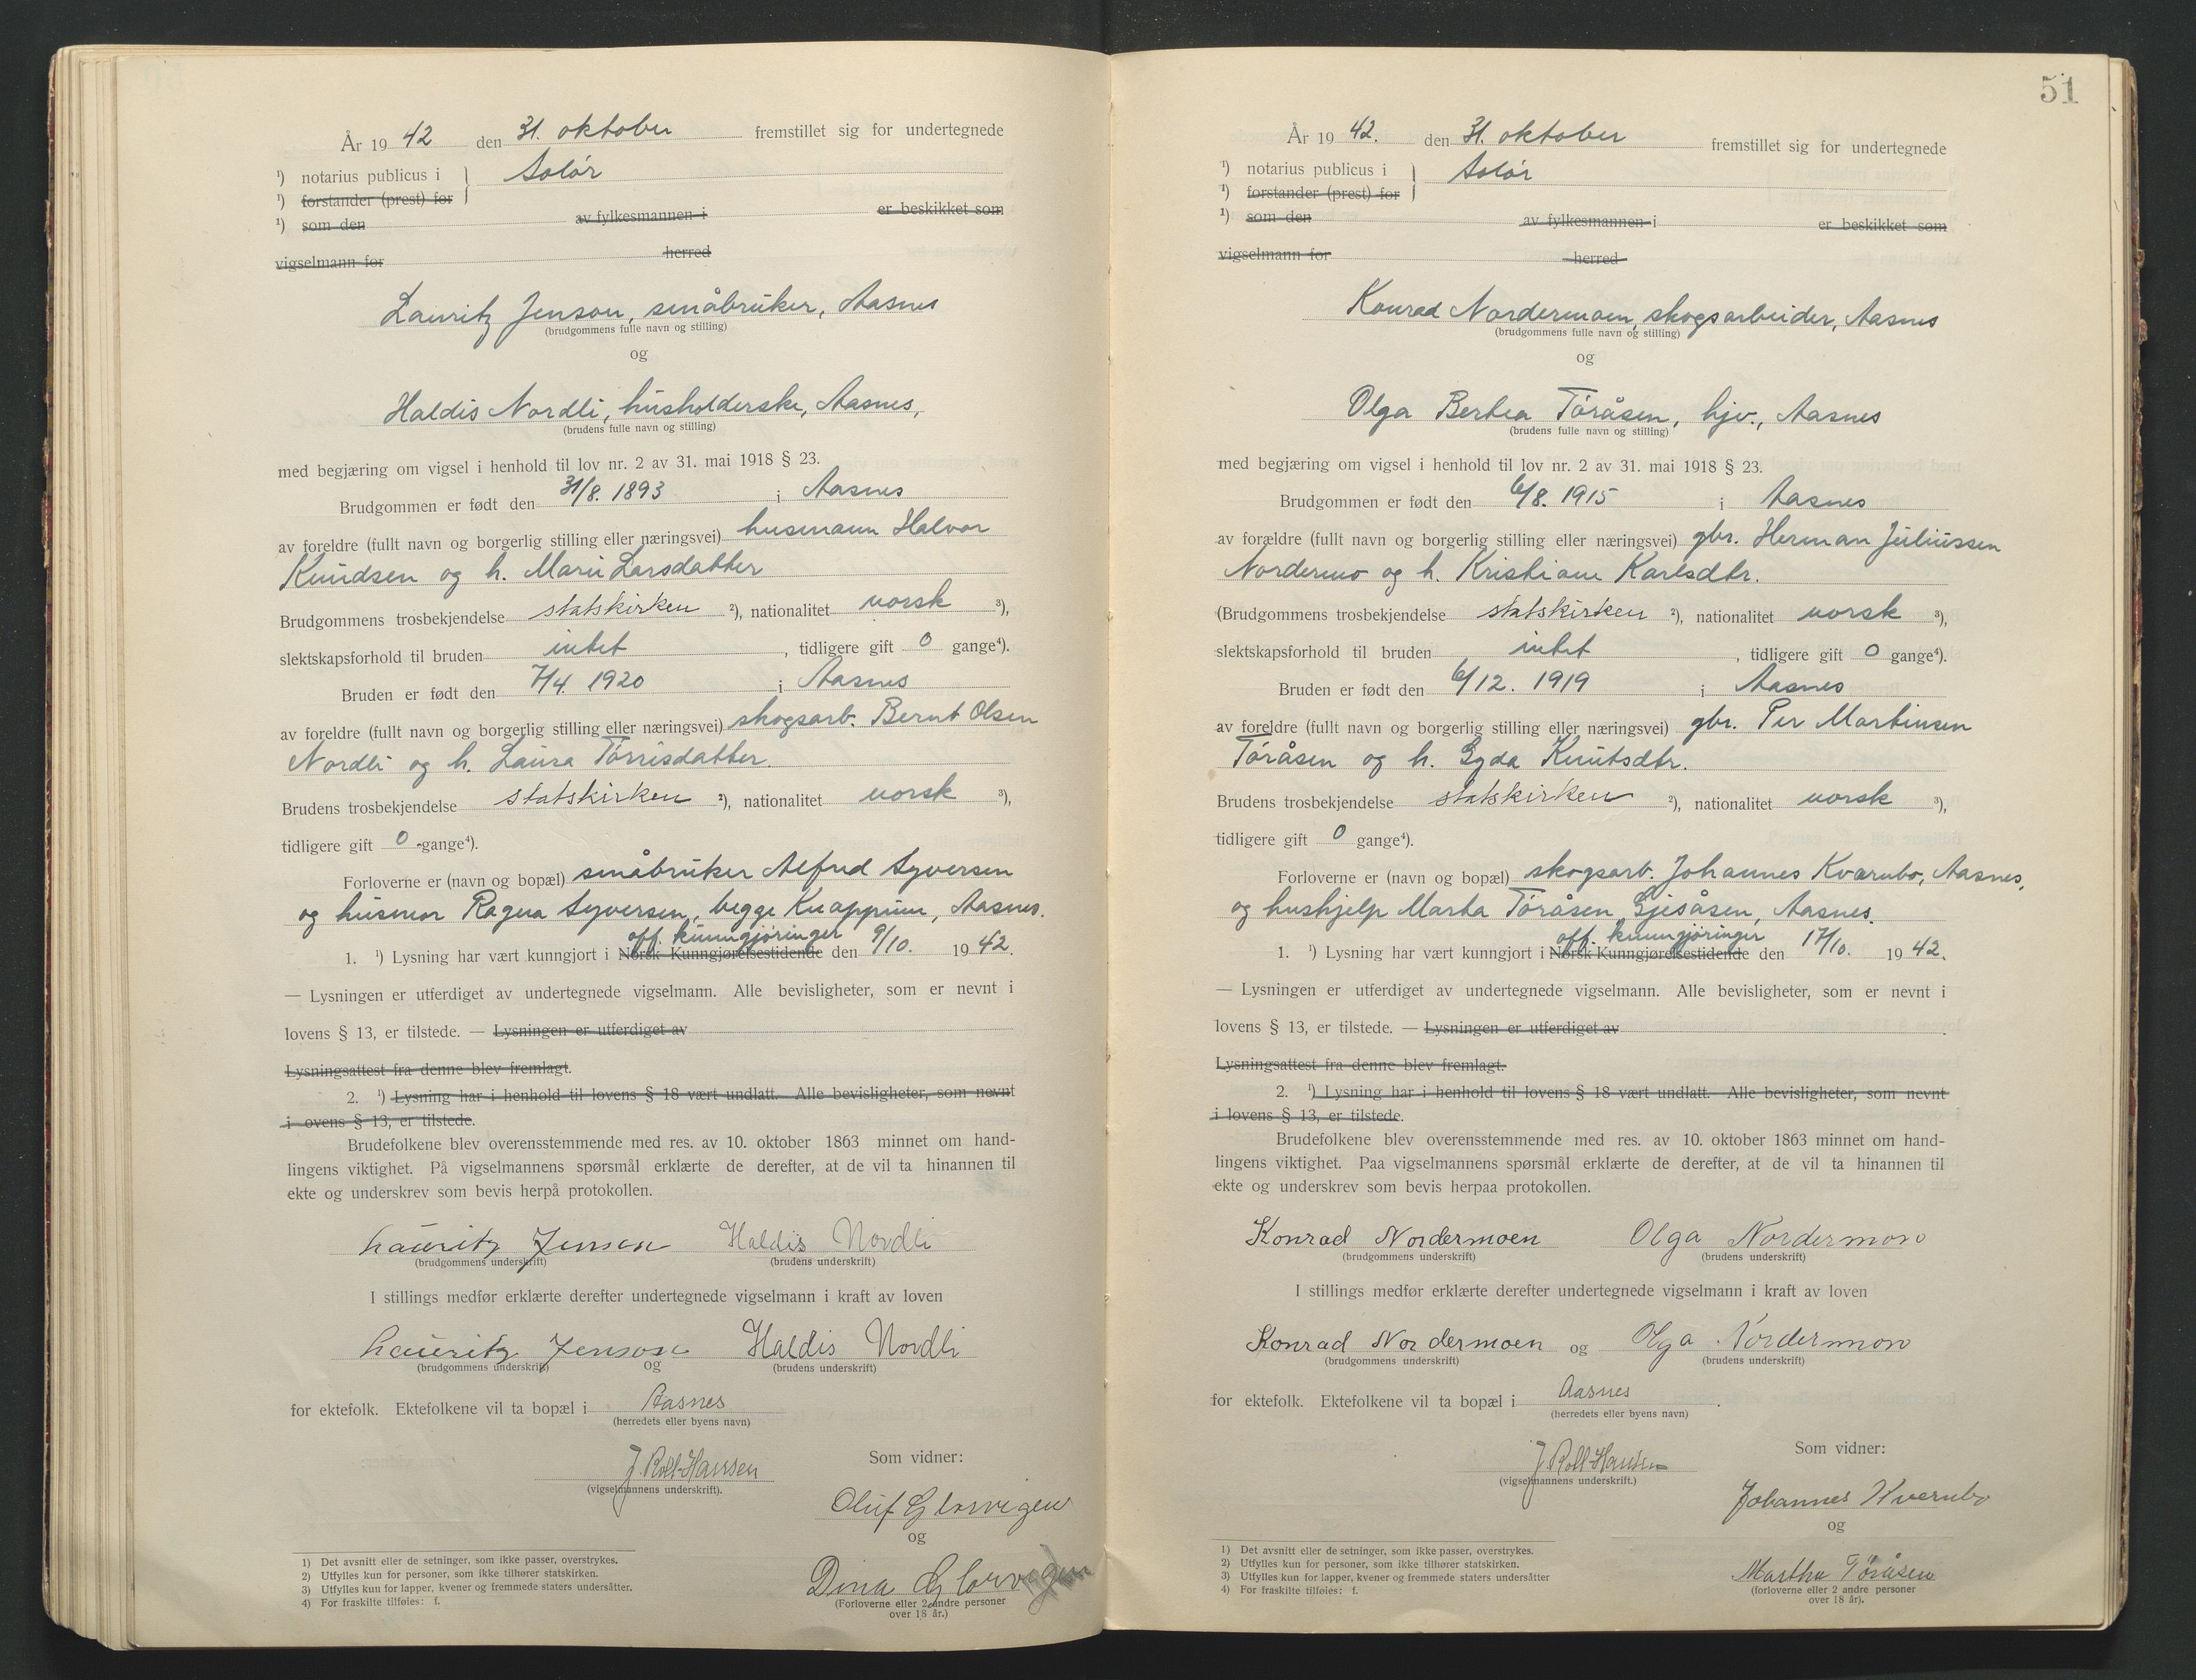 År 19 42 den 31. oktober fremstillet sig for undertegnede
¹) notarius publicus i } Solør
¹) forstander (prest) for
¹) som den av fylkesmannen i er beskikket som
vigselmann for herred
Lauritz Jenson, småbruker, Aasnes
(brudgommens fulle navn og stilling)
og
Haldis Nordli, husholderske, Aasnes,
(brudens fulle navn og stilling)
med begjæring om vigsel i henhold til lov nr. 2 av 31. mai 1918 § 23.
Brudgommen er født den 31/8. 1893 i Aasnes
av foreldre (fullt navn og borgerlig stilling eller næringsvei) husmann Halvor
Knudsen og h. Marie Larsdatter
Brudgommens trosbekjendelse statskirken ²), nationalitet norsk ³),
slektskapsforhold til bruden intet, tidligere gift 0 gange⁴).
Bruden er født den 7/4. 1920 i Aasnes
av foreldre (fullt navn og borgerlig stilling eller næringsvei) skogsarb. Bernt Olsen
Nordli og h. Laura Tørrisdatter.
Brudens trosbekjendelse statskirken ²), nationalitet norsk ³),
tidligere gift 0 gange⁴).
Forloverne er (navn og bopæl) småbruker Alfred Syversen
og husmor Ragna Syversen, begge Knappum, Aasnes.
off. kunngjøringer
1. ¹) Lysning har vært kunngjort i Norsk Kunngjørelsestidende den 9/10. 19 42.
— Lysningen er utferdiget av undertegnede vigselmann. Alle bevisligheter, som er nevnt i
lovens § 13, er tilstede. — Lysningen er utferdiget av
Lysningsattest fra denne blev fremlagt.
2. ¹) Lysning har i henhold til lovens § 18 vært undlatt. Alle bevisligheter, som nevnt
i ovens § 13, er tilstede.
Brudefolkene blev overensstemmende med res. av 10. oktober 1863 minnet om hand-
lingens viktighet. På vigselmannens spørsmål erklærte de derefter, at de vil ta hinannen til
ekte og underskrev som bevis herpå protokollen.
Lauritz Jenson Haldis Nordli
(brudgommens underskrift) (brudens underskrift)
I stillings medfør erklærte derefter undertegnede vigselmann i kraft av loven
Lauritz Jenson og Haldis Nordli
(brudgommens underskrift) (brudens underskrift)
for ektefolk. Ektefolkene vil ta bopæl i Aasnes
(herredets eller byens navn)
Som vidner:
J. Roll-Hansen
(vigselmannens underskrift).
Oluf Glorvigen
og
Dina Glorvigen
(Forloverne eller 2 andre personer
over 18 år.)
1) Det avsnitt eller de setninger, som ikke passer, overstrykes.
2) Utfylles kun for personer, som ikke tilhører statskirken.
3) Utfylles kun for lapper, kvener og fremmede staters undersåtter.
4) For fraskilte tilføies: f.
51
År 19 42. den 31. oktober fremstillet sig for undertegnede
¹) notarius publicus i } Solør
¹) forstander (prest) for
¹) som den av fylkesmannen i er beskikket som
vigselmann for herred
Konrad Nordermoen, skogsarbeider, Aasnes
(brudgommens fulle navn og stilling)
og
Olga Bertea Töråsen, hjv., Aasnes
(brudens fulle navn og stilling)
med begjæring om vigsel i henhold til lov nr. 2 av 31. mai 1918 § 23.
Brudgommen er født den 6/8. 1915 i Aasnes
av forældre (fullt navn og borgerlig stilling eller næringsvei) gbr. Herman Juliussen
Nordermo og h. Kristiane Karlsdtr.
(Brudgommens trosbekjendelse statskirken ²), nationalitet norsk ³),
slektskapsforhold til bruden intet, tidligere gift 0 gange⁴).
Bruden er født den 6/12. 1919 i Aasnes
av foreldre (fullt navn og borgerlig stilling eller næringsvei) gbr. Per Martinsen
Töråsen og h. Gyda Knutsdtr.
Brudens trosbekjendelse statskirken ²), nationalitet norsk ³),
tidligere gift 0 gange⁴).
Forloverne er (navn og bopæl) skogsarb. Johannes Kvarnbo, Aasnes,
og hushjelp Marta Töråsen, Gjesåsen, Aasnes.
off. kunngjöringer
1. ¹) Lysning har vært kunngjort i Norsk Kunngjørelsestidende den 17/10. 19 42.
— Lysningen er utferdiget av undertegnede vigselmann. Alle bevisligheter, som er nevnt i
lovens § 13, er tilstede. — Lysningen er utferdiget av
Lysningsattest fra denne blev fremlagt.
2. ¹) Lysning har i henhold til lovens § 18 vært undlatt. Alle bevisligheter, som nevnt
i lovens § 13, er tilstede.
Brudefolkene blev overensstemmende med res. av 10. oktober 1863 minnet om hand-
lingens viktighet. Paa vigselmannens spørsmål erklærte de derefter, at de vil ta hinannen til
ekte og underskrev som bevis herpaa protokollen.
Konrad Nordermoen Olga Nordermoen
(brudgommens underskrift) (brudens underskrift)
I stillings medfør erklærte derefter undertegnede vigselmann i kraft av loven
Konrad Nordermoen og Olga Nordermoen
(brudgommens underskrift) (brudens underskrift)
for ektefolk. Ektefolkene vil ta bopæl i Aasnes.
(herredets eller byens navn)
Som vidner:
J. Roll-Hansen
(vigselmannens underskrift.)
Johannes Kvernbo
og
Martha Töråsen
(forloverne eller 2 andre personer
over 18 år).
1) Det avsnitt eller de setninger, som ikke passer, overstrykes.
2) Utfylles kun for personer, som ikke tilhører statskirken.
3) Utfylles kun for lapper, kvener og fremmede staters undersåtter
4) For fraskilte tilføies: f.